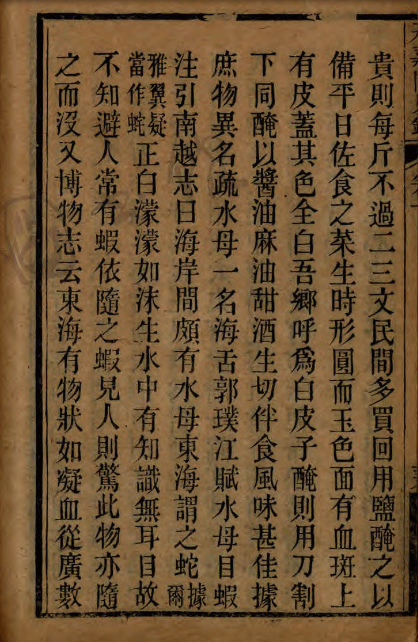 貴則每斤不過二三文民間多買回用鹽醃之以
備平日佐食之菜生時形圓而玉色面有血斑上
有皮蓋其色全白吾鄉呼爲白皮子醃則用刀割
下同醃以醬油麻油甜酒生切伴食風味甚佳據
庶物異名疏水母一名海舌郭璞江賦水母目蝦
注引南越志曰海岸間頗有水母東海謂之蛇據爾
雅翼疑當作䖳正白濛濛如沫生水中有知識無耳目故
不知避人常有蝦依隨之蝦見人則驚此物亦隨
之而沒又博物志云東海有物狀如凝血從廣數